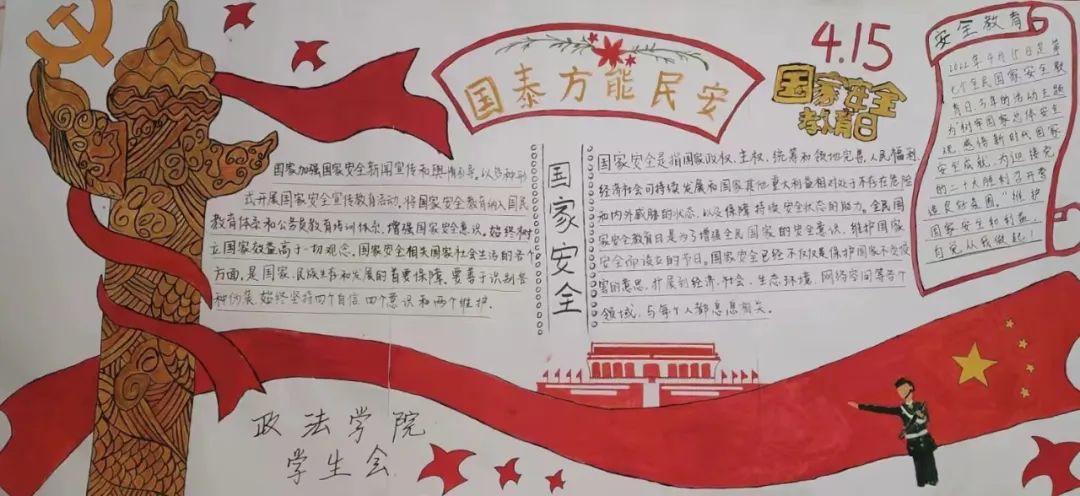 国泰方能民安
4.15
国家安全
教育日
安全教育
2022年4月15日是第
七个全民国家安全教
育日,今年的活动主题
为树牢国家总体安全
观,感悟新时代国家
安全成就,为迎接党
的二十大胜利召开营
造良好氛围。"维护
国家安全和利益,
自觉从我做起!
国家加强国家安全新闻宣传和舆情引导。以各种形
式开展国家安全宣传教育活动,将国家安全教育纳入国民
教育体系和公务员教育培训体系,增强国家安全意识。始终树
立国家效益高于一切观念。国家安全相关国家社会生活的各个
方面,是国家、民族生存和发展的首要保障。要善于识别各
种伪装,始终坚持四个自信,四个意识和两个维护。
国家安全
国家安全是指国家政权、主权、统筹和领地完善,人民福利,
经济社会可持续发展和国家其他重大利益相对处于不存在危险
和内外威胁的状态,以及保障持续安全状态的能力。全民国
家安全教育日是为了增强全民国家的安全意识,维护国家
安全而设立的节日。国家安全已经不仅仅是保护国家不受侵
害的意思,扩展到经济、社会、生态环境、网络空间等各个
领域,与每个人都息息相关。
政法学院
学生会